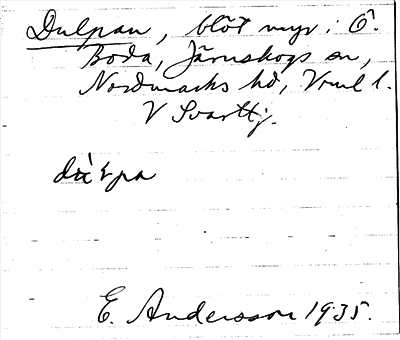 Dulpan, blöt myr i Ö.
Boda, Järnskogs sn,
Nordmarks hd, Vrml l.
V Svarttj.
E. Andersson 1935.